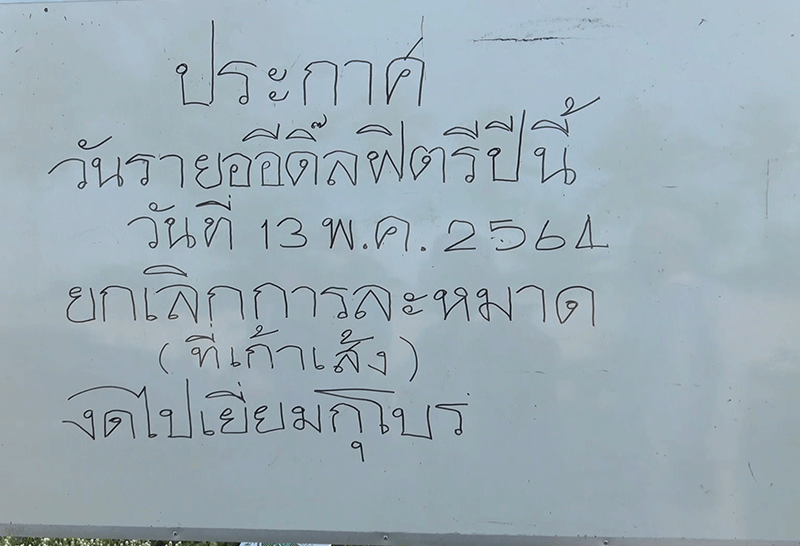 ประกาศ
วันรายออีดิ๊ลฟิตรีปีนี้
วันที่ 13 พ.ค. 2564
ยกเลิกการละหมาด
(ที่เก้าเส้ง)
งดไปเยี่ยมกุโบร